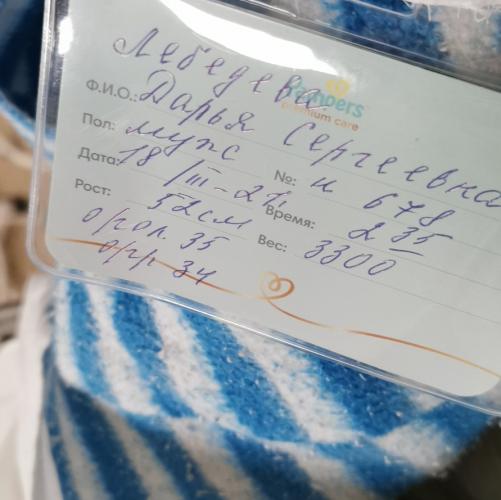 Лебедева
Pampers
premium care
Ф.И.О.: Дарья Сергеевна
Пол: муж №: н 678
Дата: 18/III-21. Время: 2 35
Рост: 52 см Вес: 3300
о/гол. 35
о/гр. 34